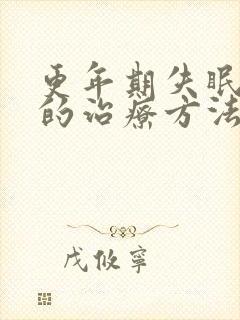 更年期失眠
的治疗方法
戊攸寧